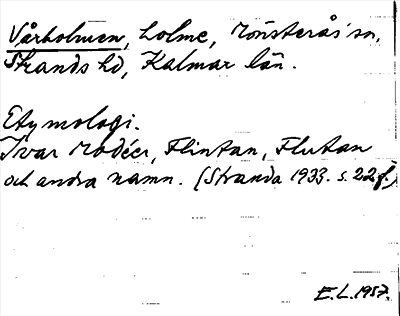 Vårholmen, holme, Mönsterås sn,
Strands hd, Kalmar län.
Etymologi.
Ivar Modéer, Flintan, Flutan
och andra namn. (Stranda 1933. s. 22 f.)
E.L. 1957.